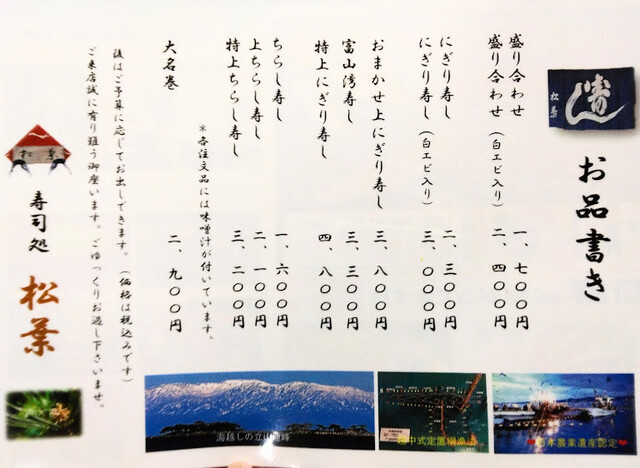 寿し
松葉
お品書き
盛り合わせ 一、七〇〇円
盛り合わせ(白エビ入り) 二、四〇〇円
にぎり寿し 二、三〇〇円
にぎり寿し(白エビ入り) 三、〇〇〇円
おまかせ上にぎり寿し 三、八〇〇円
富山湾寿し 三、三〇〇円
特上にぎり寿し 四、八〇〇円
ちらし寿し 一、六〇〇円
上ちらし寿し 二、一〇〇円
特上ちらし寿し 三、二〇〇円
※各注文品には味噌汁が付いています。
大名巻 二、九〇〇円
後はご予算に応じてお出しできます。(価格は税込みです)
ご来店誠に有り難う御座います。ごゆっくりお過し下さいませ。
松葉
寿司処 松葉
海越しの立山連峰
越中式定置網漁法
❤日本農業遺産認定❤